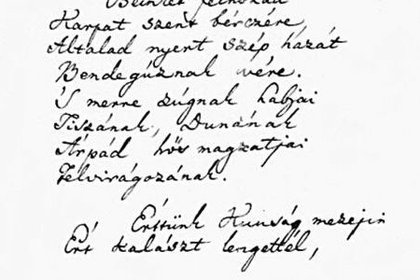 felhozád
Karpat szent bérczére,
Általad nyert szép hazát
Bendegúznak vére.
'S merre zúgnak habjai
Tiszának, Dunának
Árpád hős magzatjai
Felvirágozának.
Értünk Kunság mezejin
Ért kalászt lengettél,